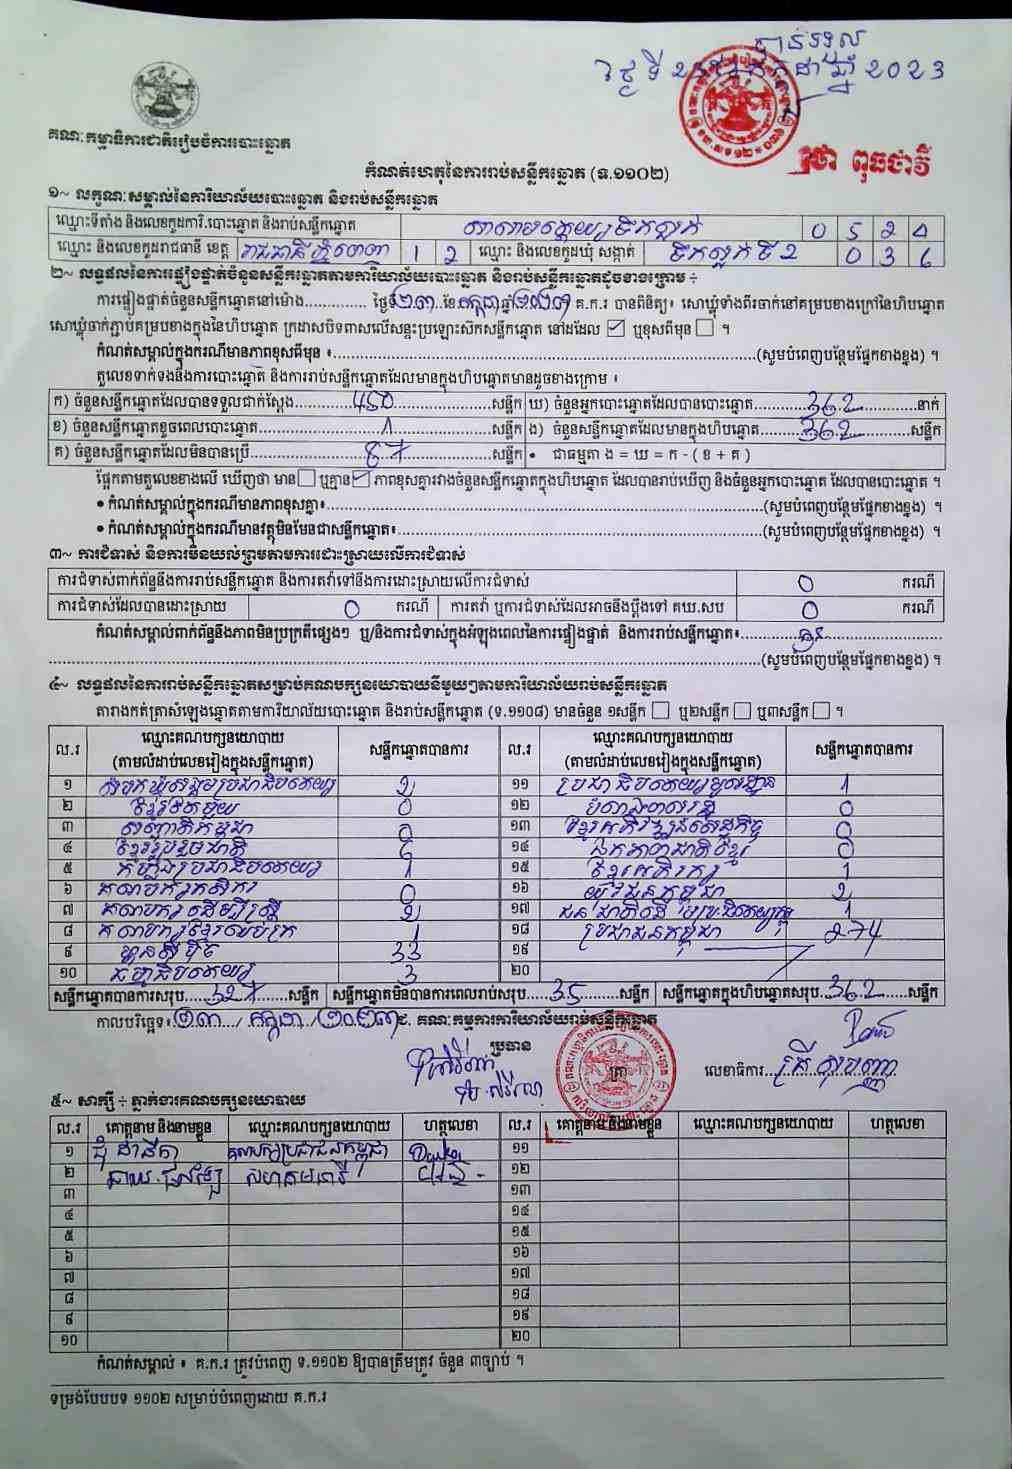 បានទទួល
ថ្ងៃទី 23 កក្កដា ឆ្នាំ 2023
គណៈកម្មាធិការជាតិរៀបចំការបោះឆ្នោត
ថោ ពុធថាវី
កំណត់ហេតុនៃការរាប់សន្លឹកឆ្នោត (ទ.១១០២)
១~ លក្ខណៈសម្គាល់នៃការិយាល័យបោះឆ្នោត និងរាប់សន្លឹកឆ្នោត
ឈ្មោះទីតាំង និងលេខកូដការិ.បោះឆ្នោត និងរាប់សន្លឹកឆ្នោត 0 5 2 4
ឈ្មោះ និងលេខកូដរាជធានី ខេត្ត រាជធានីភ្នំពេញ 1 2 ឈ្មោះ និងលេខកូដឃុំ សង្កាត់ ទឹកល្អក់ទី 2 0 3 6
២~ លទ្ធផលនៃការផ្ទៀងផ្ទាត់ចំនួនសន្លឹកឆ្នោតតាមការិយាល័យបោះឆ្នោត និងរាប់សន្លឹកឆ្នោតដូចខាងក្រោម ÷
ការផ្ទៀងផ្ទាត់ចំនួនសន្លឹកឆ្នោតនៅម៉ោង............. ថ្ងៃទី២៣ ខែកក្កដា ឆ្នាំ២០២៣ គ.ក.រ បានពិនិត្យ៖ សោឃ្លុំទាំងពីរចាក់នៅគម្របខាងក្រៅនៃហិបឆ្នោត
សោឃ្លុំចាក់ភ្ជាប់គម្របខាងក្នុងនៃហិបឆ្នោត ក្រដាសបិទពាសលើសន្ទះប្រឡោះស៊កសន្លឹកឆ្នោត នៅដដែល ☑ ឬខុសពីមុន ☐ ។
កំណត់សម្គាល់ក្នុងករណីមានភាពខុសពីមុន ៖..............................(សូមបំពេញបន្ថែមផ្នែកខាងខ្នង) ។
តួលេខទាក់ទងនឹងការបោះឆ្នោត និងការរាប់សន្លឹកឆ្នោតដែលមានក្នុងហិបឆ្នោតមានដូចខាងក្រោម ៖
ក) ចំនួនសន្លឹកឆ្នោតដែលបានទទួលជាក់ស្តែង..........450..........សន្លឹក ឃ) ចំនួនអ្នកបោះឆ្នោតដែលបានបោះឆ្នោត..........362..........នាក់
ខ) ចំនួនសន្លឹកឆ្នោតខូចពេលបោះឆ្នោត..........1..........សន្លឹក ង) ចំនួនសន្លឹកឆ្នោតដែលមានក្នុងហិបឆ្នោត..........362..........សន្លឹក
គ) ចំនួនសន្លឹកឆ្នោតដែលមិនបានប្រើ..........87..........សន្លឹក • ជាធម្មតា ង = ឃ = ក - ( ខ + គ )
ផ្អែកតាមតួលេខខាងលើ ឃើញថា មាន ☐ ឬគ្មាន ☑ ភាពខុសគ្នារវាងចំនួនសន្លឹកឆ្នោតក្នុងហិបឆ្នោត ដែលបានរាប់ឃើញ និងចំនួនអ្នកបោះឆ្នោត ដែលបានបោះឆ្នោត ។
• កំណត់សម្គាល់ក្នុងករណីមានភាពខុសគ្នា៖..............................(សូមបំពេញបន្ថែមផ្នែកខាងខ្នង) ។
• កំណត់សម្គាល់ក្នុងករណីមានវត្ថុមិនមែនជាសន្លឹកឆ្នោត៖..............................(សូមបំពេញបន្ថែមផ្នែកខាងខ្នង) ។
៣~ ការជំទាស់ និងការមិនយល់ព្រមតាមការដោះស្រាយលើការជំទាស់
ការជំទាស់ពាក់ព័ន្ធនឹងការរាប់សន្លឹកឆ្នោត និងការតវ៉ាទៅនឹងការដោះស្រាយលើការជំទាស់ 0 ករណី
ការជំទាស់ដែលបានដោះស្រាយ 0 ករណី ការតវ៉ា ឬការជំទាស់ដែលអាចនឹងប្តឹងទៅ គឃ.សប 0 ករណី
កំណត់សម្គាល់ពាក់ព័ន្ធនឹងភាពមិនប្រក្រតីផ្សេងៗ ឬ/និងការជំទាស់ក្នុងអំឡុងពេលនៃការផ្ទៀងផ្ទាត់ និងការរាប់សន្លឹកឆ្នោត៖..............................
..............................(សូមបំពេញបន្ថែមផ្នែកខាងខ្នង) ។
៤~ លទ្ធផលនៃការរាប់សន្លឹកឆ្នោតសម្រាប់គណបក្សនយោបាយនីមួយៗតាមការិយាល័យរាប់សន្លឹកឆ្នោត
តារាងកត់ត្រាសំឡេងឆ្នោតតាមការិយាល័យបោះឆ្នោត និងរាប់សន្លឹកឆ្នោត (ទ.១១០៨) មានចំនួន ១សន្លឹក ☐ ឬ២សន្លឹក ☐ ឬ៣សន្លឹក ☐ ។
ល.រ ឈ្មោះគណបក្សនយោបាយ (តាមលំដាប់លេខរៀងក្នុងសន្លឹកឆ្នោត) សន្លឹកឆ្នោតបានការ ល.រ ឈ្មោះគណបក្សនយោបាយ (តាមលំដាប់លេខរៀងក្នុងសន្លឹកឆ្នោត) សន្លឹកឆ្នោតបានការ
១ សំបុកឃ្មុំសង្គមប្រជាធិបតេយ្យ 2 ១១ ប្រជាធិបតេយ្យមូលដ្ឋាន 1
២ ខ្មែរតែមួយ 0 ១២ 0
៣ សញ្ជាតិកម្ពុជា 0 ១៣ ខ្មែរអភិវឌ្ឍន៍សេដ្ឋកិច្ច 0
៤ ខ្មែររួបរួមជាតិ ១៤ ឯកភាពជាតិខ្មែរ 0
៥ កម្លាំងប្រជាធិបតេយ្យ 1 ១៥ ខ្មែរអភិរក្ស 1
៦ គណបក្សកសិករ 0 ១៦ យុវជនកម្ពុជា 2
៧ គណបក្សដើម្បីស្ត្រី 2 ១៧ ជនជាតិដើមប្រជាធិបតេយ្យកម្ពុជា 1
៨ គណបក្សខ្មែរឈប់ក្រ 1 ១៨ ប្រជាជនកម្ពុជា 274
៩ ហ្វ៊ុនស៊ិនប៉ិច 33 ១៩
១០ ធម្មាធិបតេយ្យ 3 ២០
សន្លឹកឆ្នោតបានការសរុប.....327.....សន្លឹក សន្លឹកឆ្នោតមិនបានការពេលរាប់សរុប.....35.....សន្លឹក សន្លឹកឆ្នោតក្នុងហិបឆ្នោតសរុប.....362.....សន្លឹក
កាលបរិច្ឆេទ៖ ២៣ / កក្កដា / ២០២៣ គណៈកម្មការការិយាល័យរាប់សន្លឹកឆ្នោត
ប្រធាន ត្រា លេខាធិការ
៥~ សាក្សី ÷ ភ្នាក់ងារគណបក្សនយោបាយ
ល.រ គោត្តនាម និងនាមខ្លួន ឈ្មោះគណបក្សនយោបាយ ហត្ថលេខា ល.រ គោត្តនាម និងនាមខ្លួន ឈ្មោះគណបក្សនយោបាយ ហត្ថលេខា
១ ជុំ ដានីតា គណបក្សប្រជាជនកម្ពុជា ១១
២ ១២
៣ ១៣
៤ ១៤
៥ ១៥
៦ ១៦
៧ ១៧
៨ ១៨
៩ ១៩
១០ ២០
កំណត់សម្គាល់ ៖ គ.ក.រ ត្រូវបំពេញ ទ.១១០២ ឱ្យបានត្រឹមត្រូវ ចំនួន ៣ច្បាប់ ។
ទម្រង់បែបបទ ១១០២ សម្រាប់បំពេញដោយ គ.ក.រ